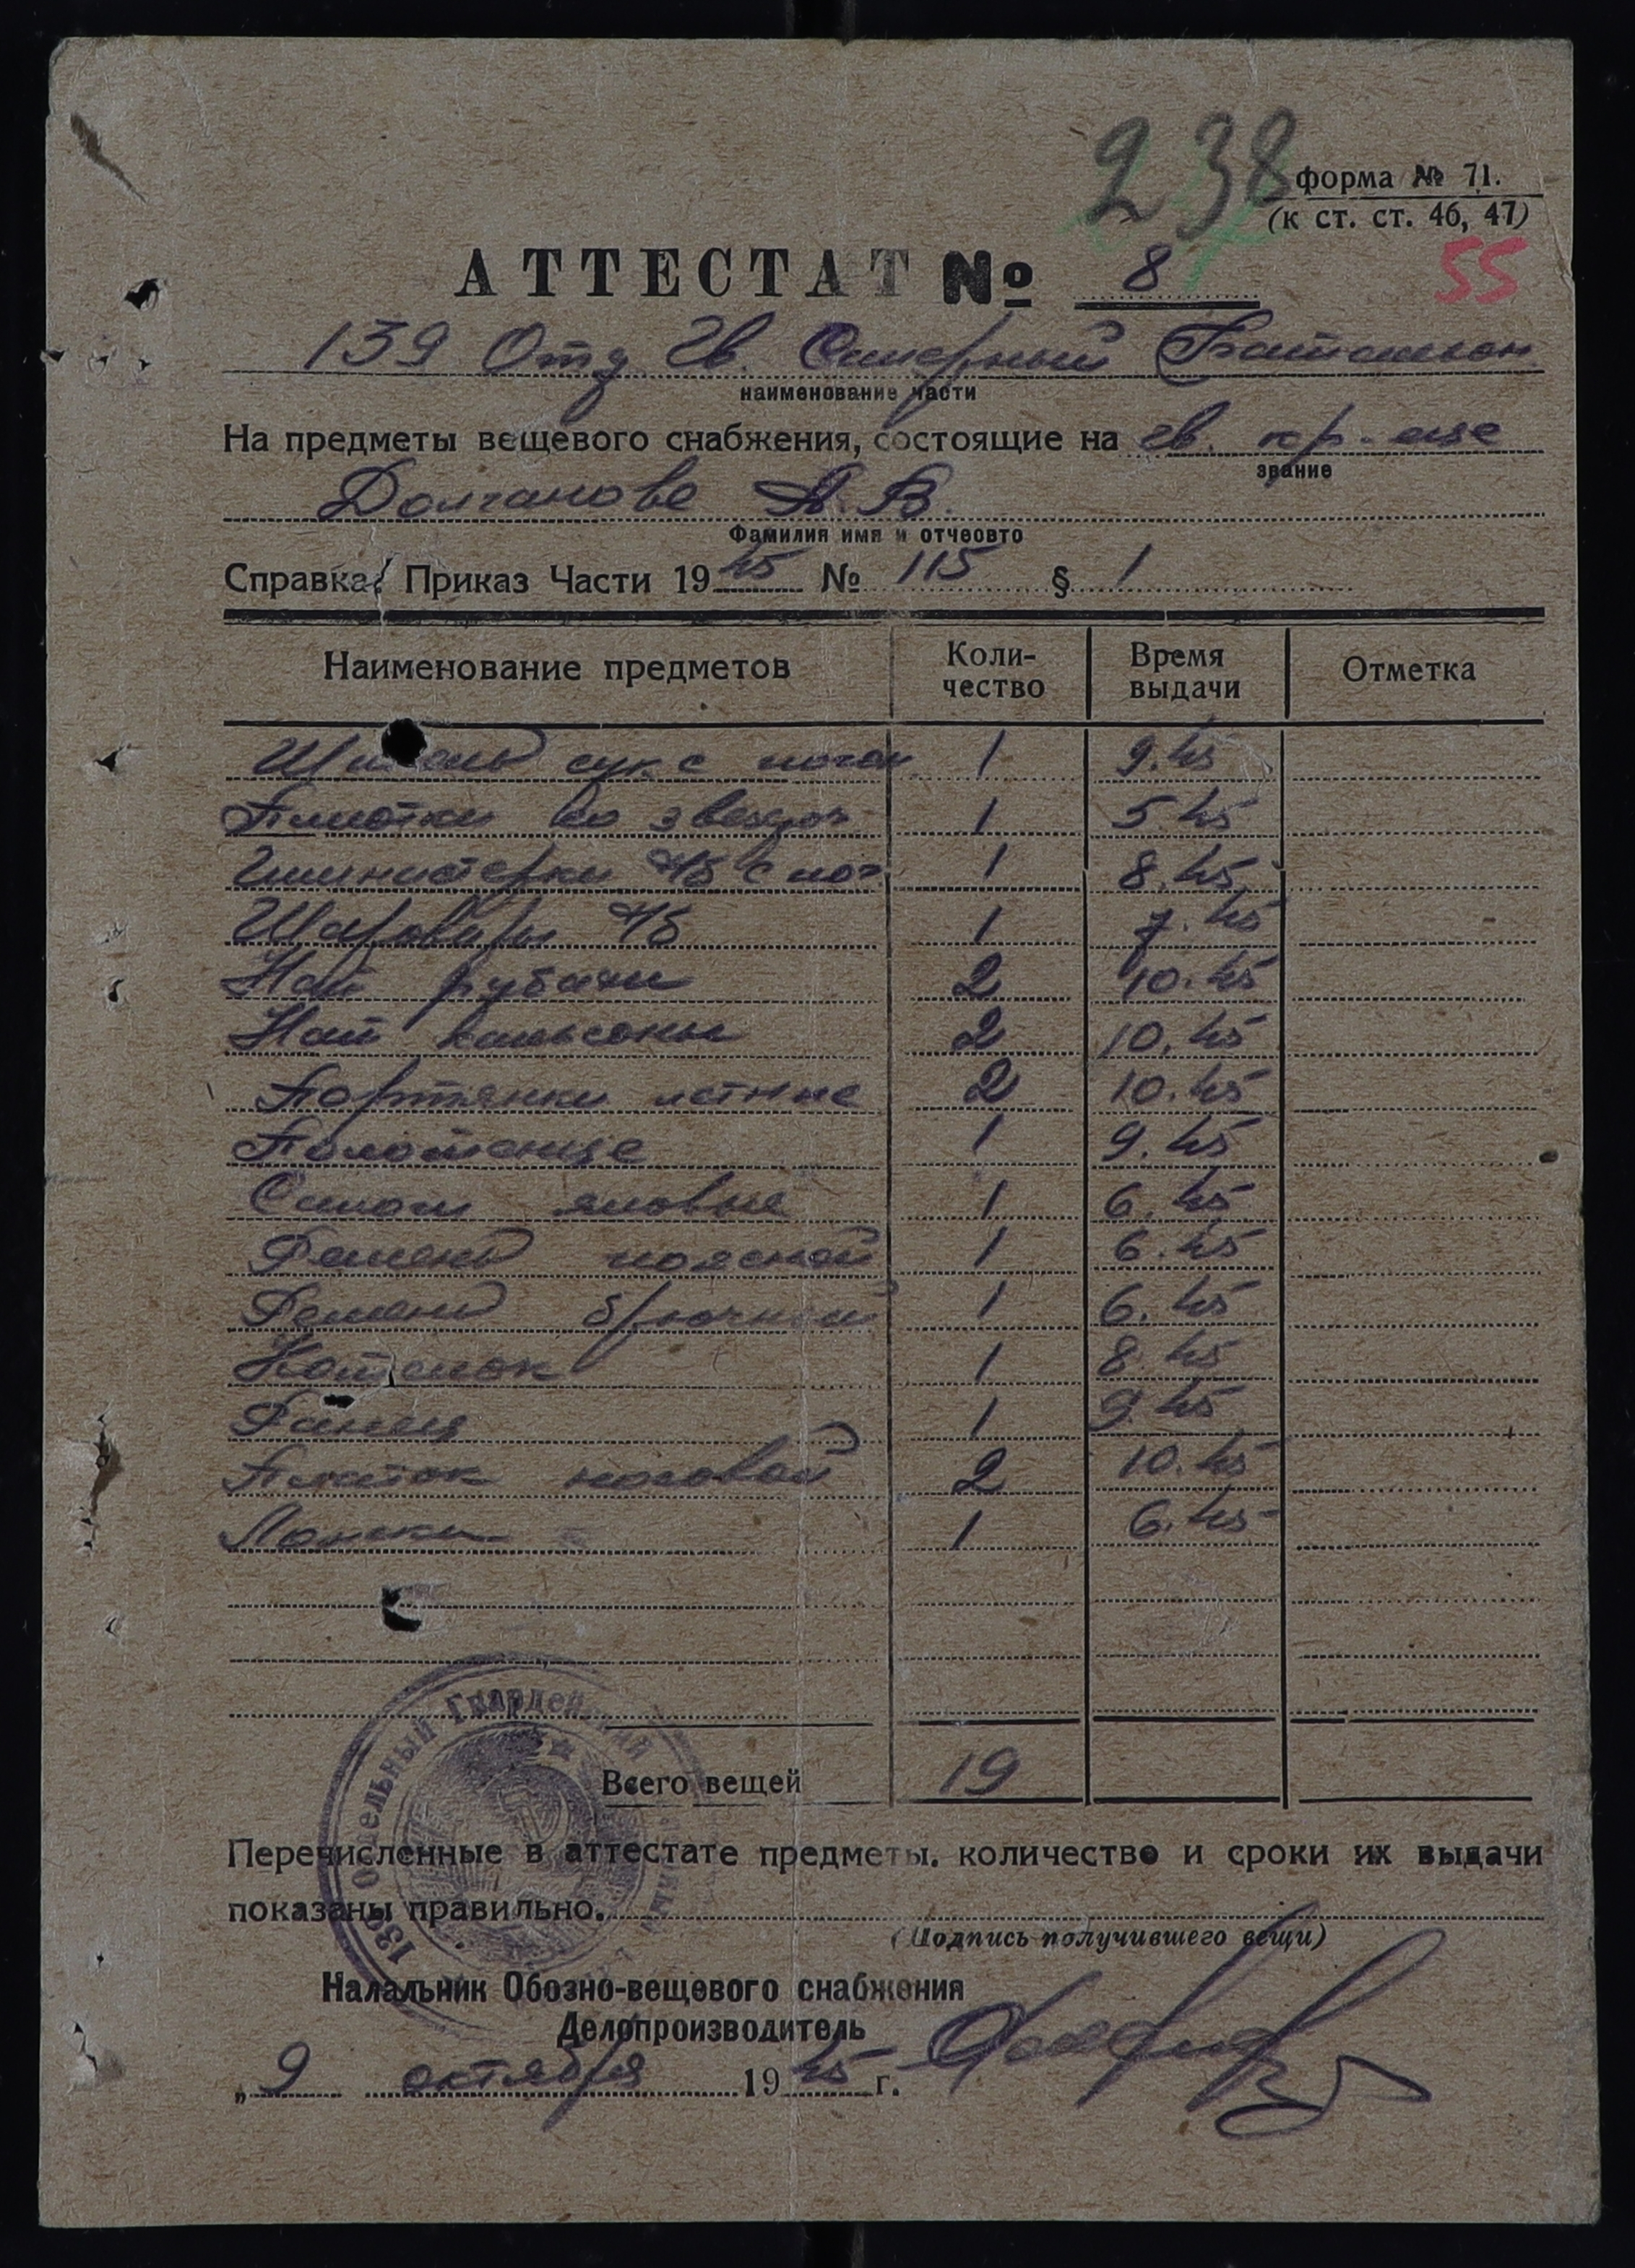 238
форма № 71.
(к ст. ст. 46, 47)
55
АТТЕСТАТ № 8
139 Отд Гв. Саперный Батальон
наименование части
На предметы вещевого снабжения, состоящие на гв. кр-нце
звание
Долганове А. В.
Фамилия имя и отчеовто
Справка: Приказ Части 1945 № 115 § 1
Наименование предметов Коли-чество Время выдачи Отметка
Шинель сук с погон 1 9.45
Пилотки со звездоч 1 5.45
Гимнастерки х/б с пог 1 8.45
Шаровары х/б 1 7.45
Нат рубахи 2 10.45
Нат кальсоны 2 10.45
Портянки летние 2 10.45
Полотенце 1 9.45
Сапоги яловые 1 6.45
Ремень поясной 1 6.45
Ремень брючной 1 6.45
Котелок 1 8.45
Ранец 1 9.45
Платок носовой 2 10.45
Ложки 1 6.45
Всего вещей 19
139 Отдельный Гвардейский
Перечисленные в аттестате предметы. количество и сроки их выдачи
показаны правильно.
(Подпись получившего вещи)
Налальник Обозно-вещевого снабжения
Делопроизводитель
„9 октября 1945 г.